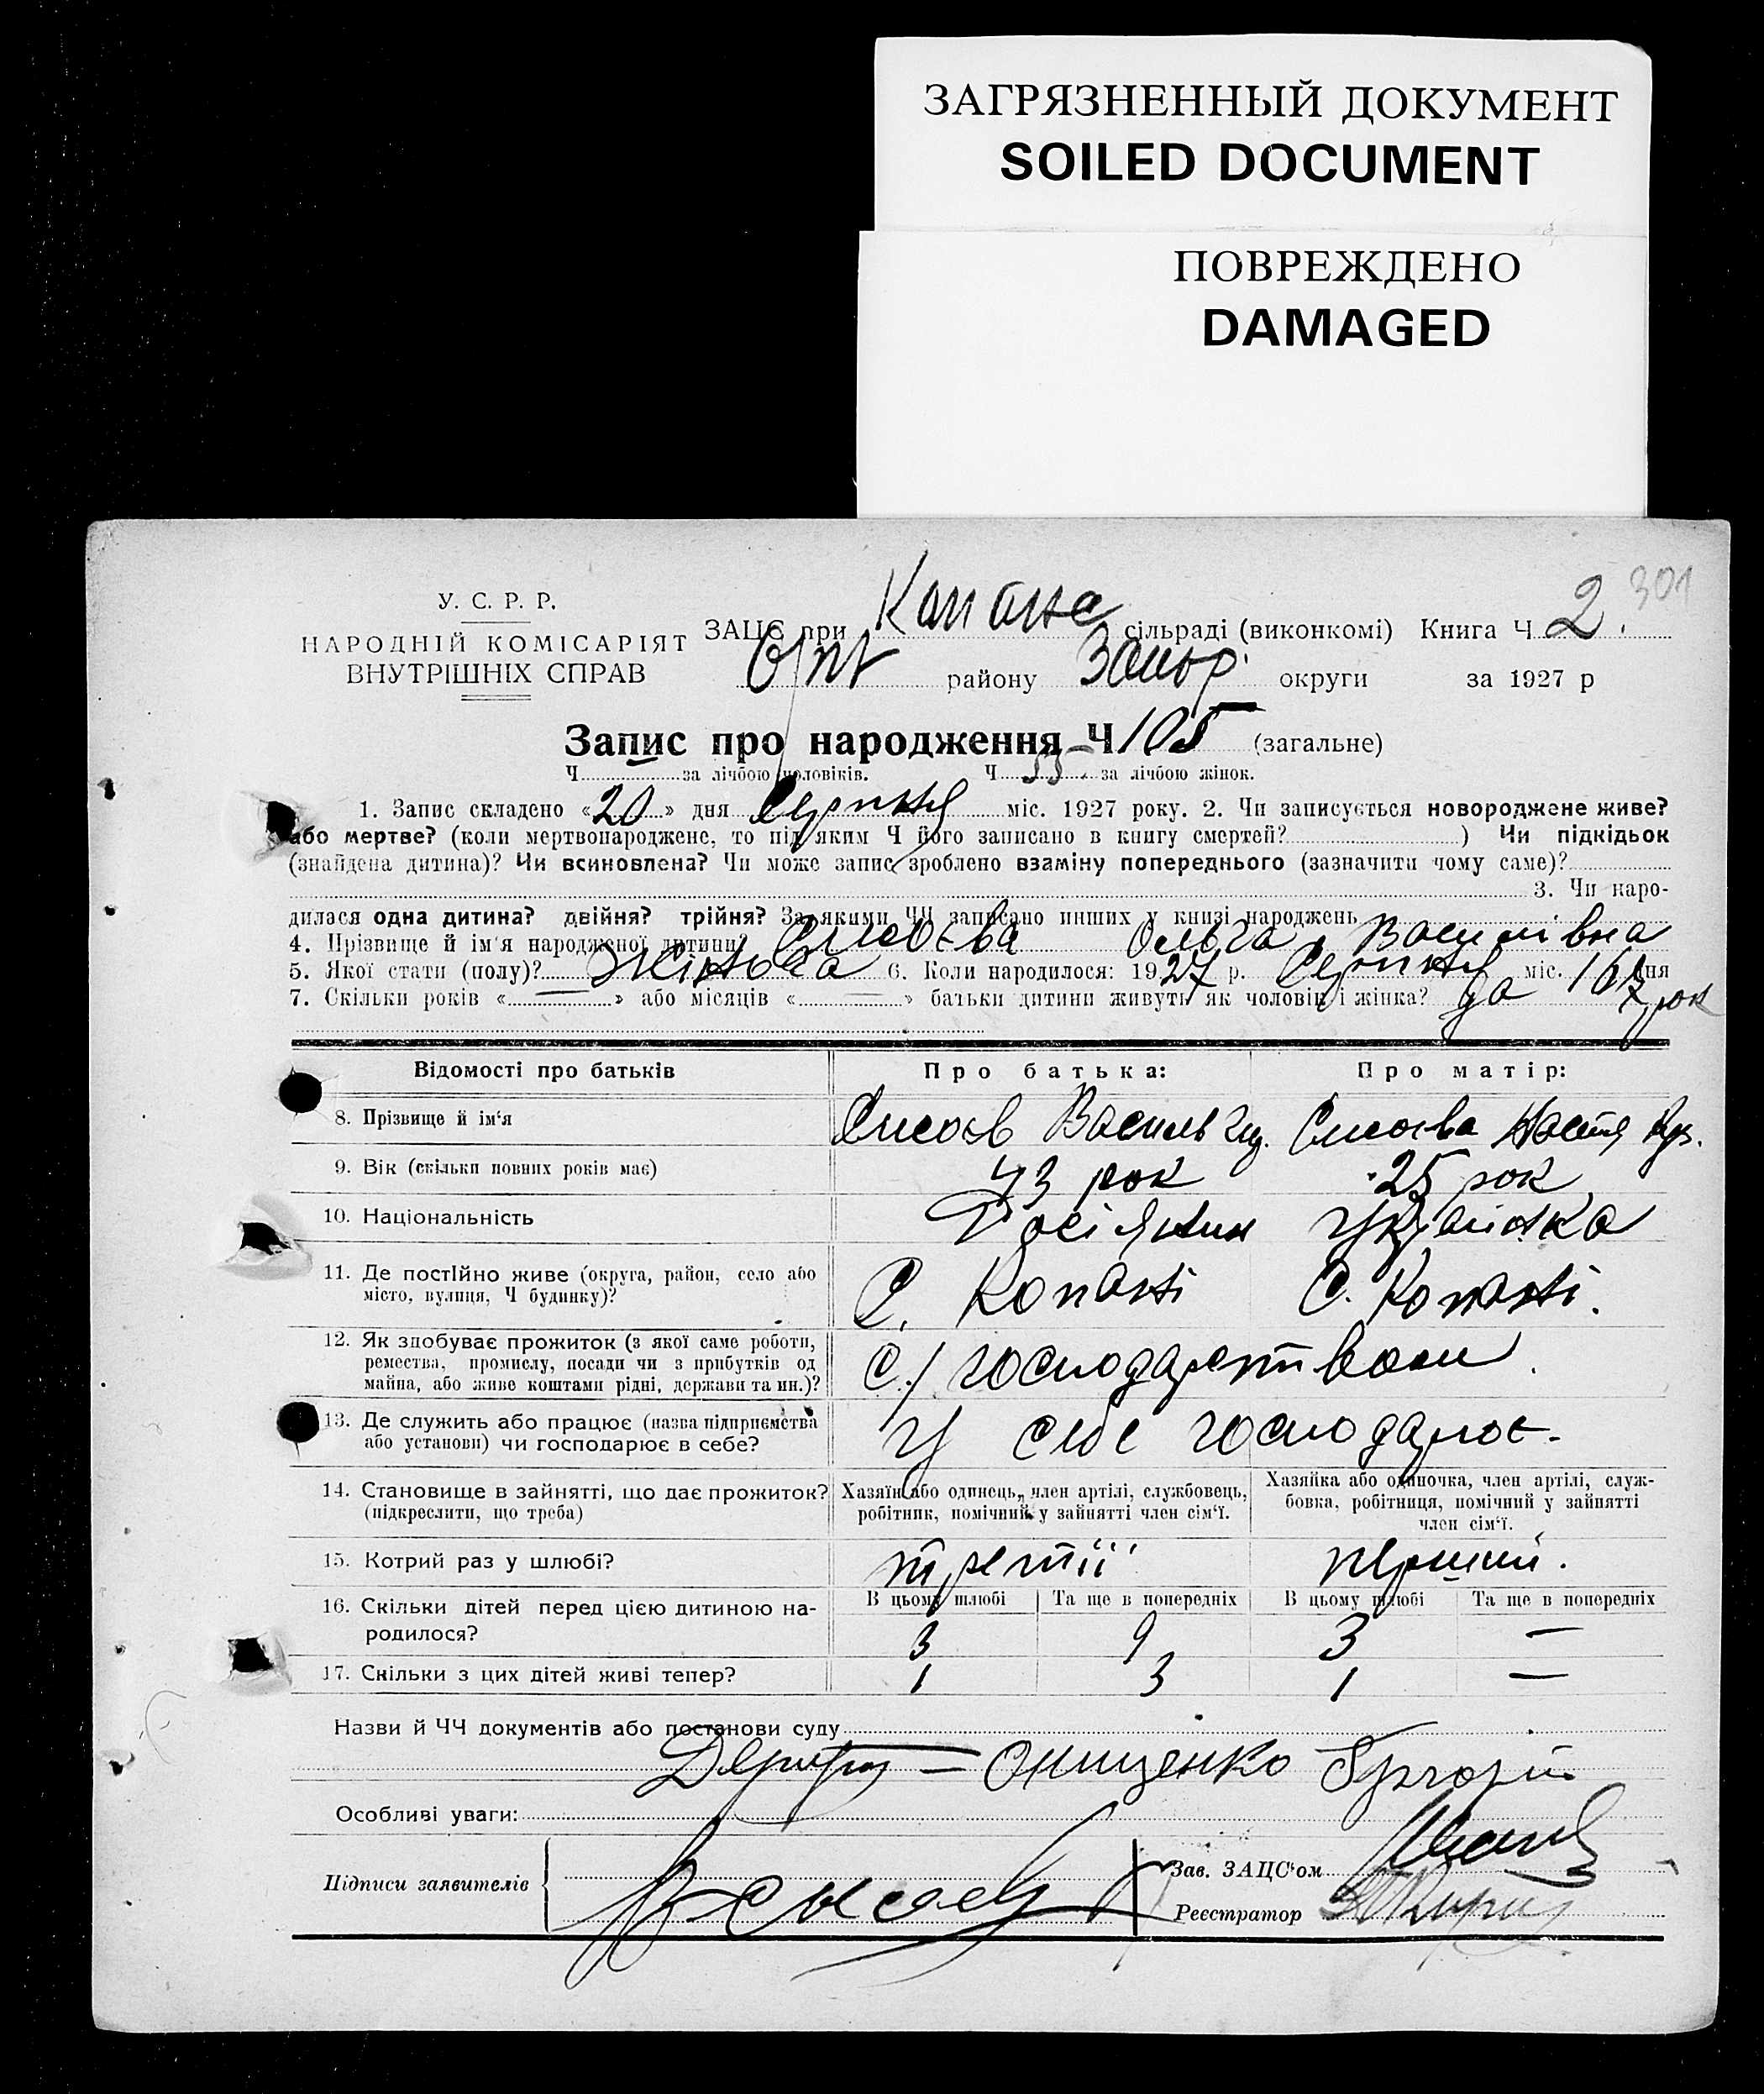 ЗАГРЯЗНЕННЫЙ ДОКУМЕНТ
SOILED DOCUMENT
ПОВРЕЖДЕНО
DAMAGED
301
У. С. Р. Р.
НАРОДНІЙ КОМІСАРІЯТ
ВНУТРІШНІХ СПРАВ
ЗАЦС при Капане сільраді (виконкомі) Книга Ч 2.
району Запор. округи за 1927 р
Запис про народження Ч 105 (загальне)
Ч за лічбою чоловіків. Ч 53 за лічбою жінок.
1. Запис складено «20» дня Серпня міс. 1927 року. 2. Чи записується новороджене живе?
або мертве? (коли мертвонароджене, то під яким Ч його записано в книгу смертей? ) Чи підкідьок
(знайдена дитина)? Чи всиновлена? Чи може запис зроблено взаміну попереднього (зазначити чому саме)?
3. Чи наро-
дилася одна дитина? двійня? трійня? За якими ЧЧ записано инших у книзі народжень
4. Прізвище й ім'я народженої дитини? Сисоєва Ольга Василівна
5. Якої стати (полу)? Жіноча 6. Коли народилося: 1927 р. Серпня міс. 16 дня
7. Скільки років « — » або місяців « — » батьки дитини живуть як чоловік і жінка? да 7 рок
Відомості про батьків Про батька: Про матір:
8. Прізвище й ім'я Сисоєв Василь Сисоєва Настя
9. Вік (скільки повних років має) 43 рок 25 рок
10. Національність Росіянин Українка
11. Де постійно живе (округа, район, село або
місто, вулиця, Ч будинку)? С. Копані С. Копані.
12. Як здобуває прожиток (з якої саме роботи,
ремества, промислу, посади чи з прибутків од
майна, або живе коштами рідні, держави та ин.)? С/господарством.
13. Де служить або працює (назва підприємства
або установи) чи господарює в себе? У себе господарює.
14. Становище в зайнятті, що дає прожиток?
(підкреслити, що треба)
Хазяїн або одинець, член артілі, службовець,
робітник, помічний у зайнятті член сім'ї.
Хазяйка або одиночка, член артілі, служ-
бовка, робітниця, помічний у зайнятті
член сім'ї.
15. Котрий раз у шлюбі? третій перший.
16. Скільки дітей перед цією дитиною на-
родилося?
В цьому шлюбі Та ще в попередніх В цьому шлюбі Та ще в попередніх
3 9 3 —
17. Скільки з цих дітей живі тепер? 1 3 1 —
Назви й ЧЧ документів або постанови суду
— Онищенко Григорій
Особливі уваги:
Підписи заявителів В Сысоев
Зав. ЗАЦС'ом
Реєстратор